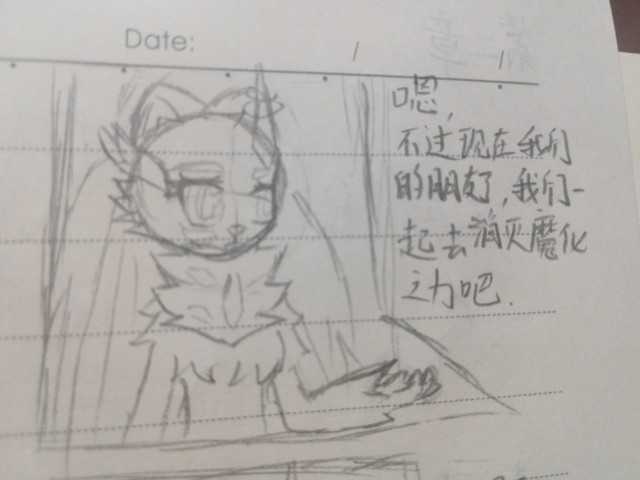 Date: / /
嗯,
不过现在我们
的朋友,我们一
起去消灭魔化
之力吧.